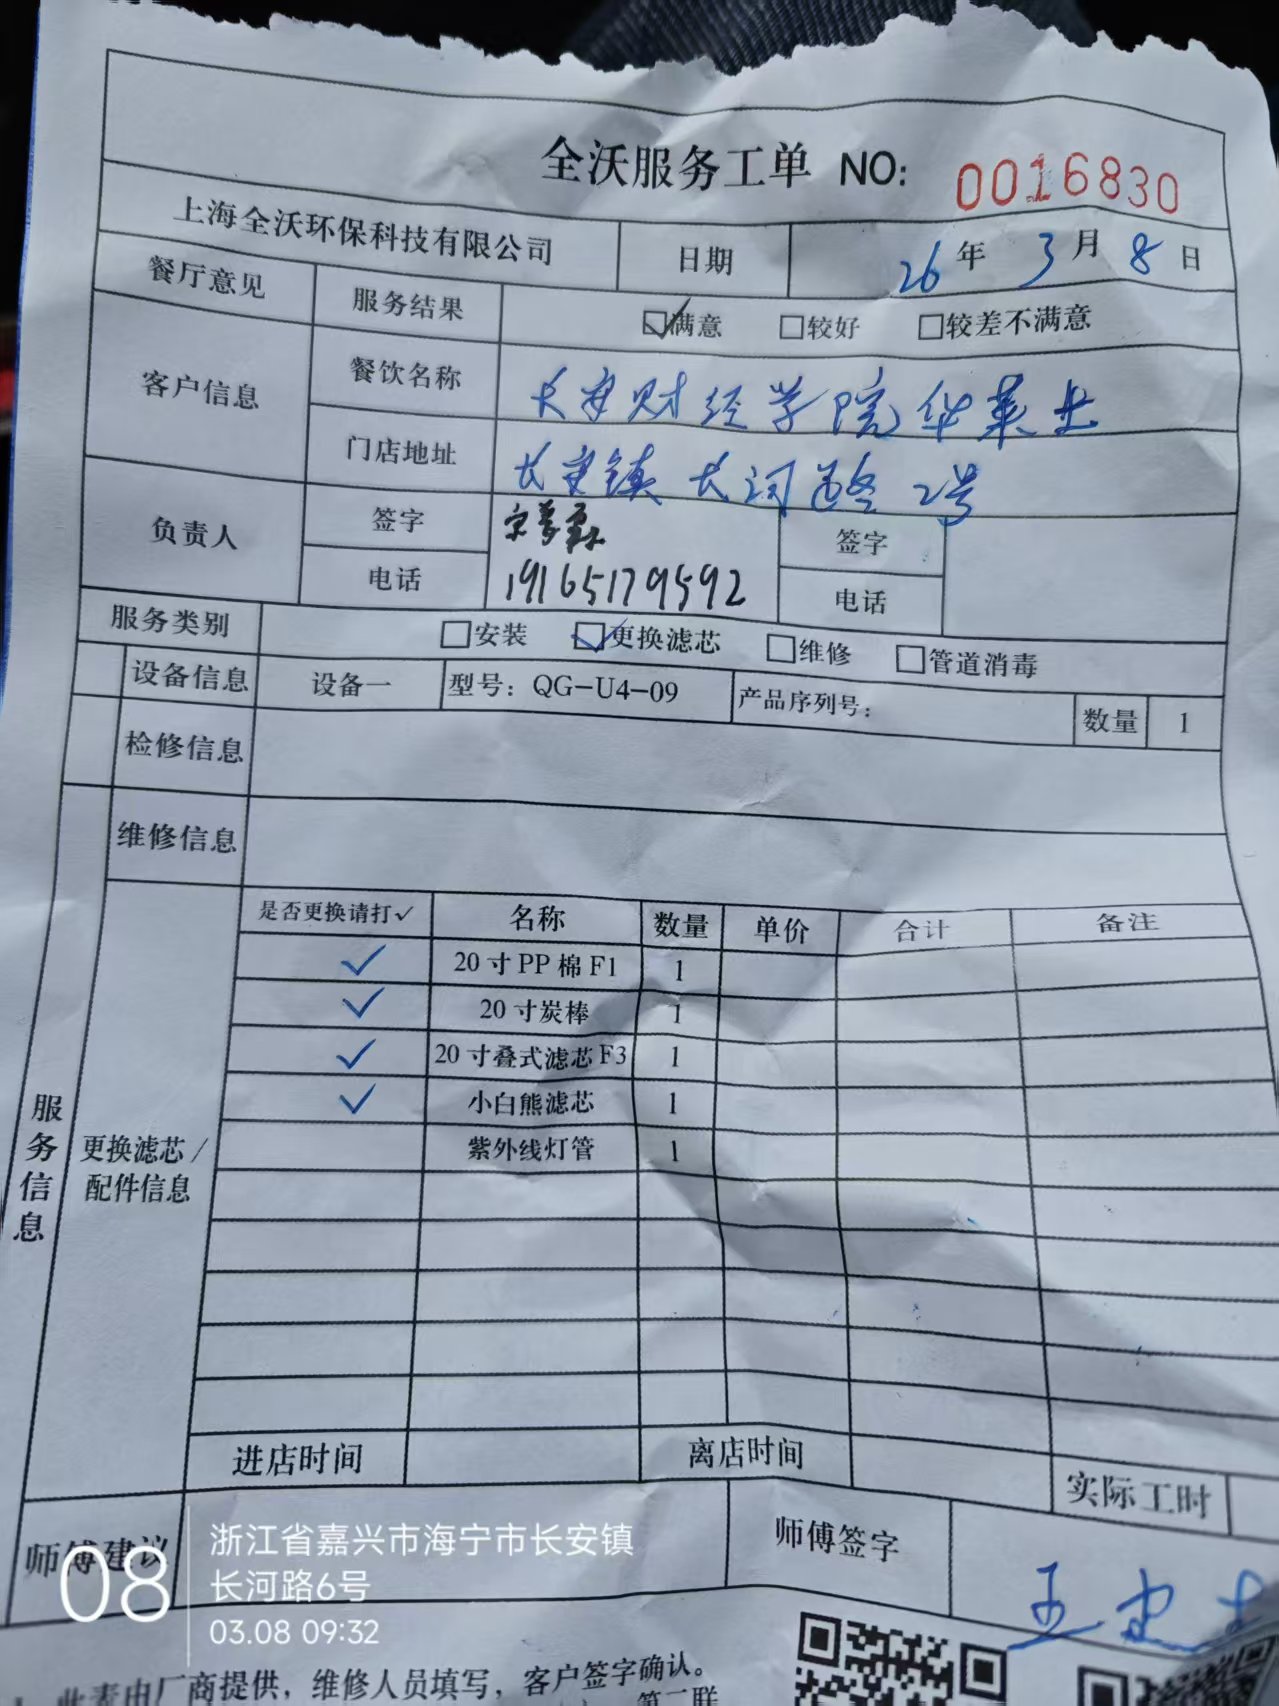 全沃服务工单 NO: 0016830
上海全沃环保科技有限公司 日期 26年3月8日
餐厅意见 服务结果 ☑满意 □较好 □较差不满意
客户信息 餐饮名称 长安财经学院华莱士
门店地址 长安镇长河路2号
负责人 签字 签字
电话 19165179592 电话
服务类别 □安装 ☑更换滤芯 □维修 □管道消毒
设备信息 设备一 型号：QG-U4-09 产品序列号： 数量 1
检修信息
维修信息
服务信息
更换滤芯/
配件信息
是否更换请打✓ 名称 数量 单价 合计 备注
✓ 20寸PP棉F1 1
✓ 20寸炭棒 1
✓ 20寸叠式滤芯F3 1
✓ 小白熊滤芯 1
紫外线灯管 1
进店时间 离店时间 实际工时
师傅建议 师傅签字 王
08
浙江省嘉兴市海宁市长安镇
长河路6号
03.08 09:32
此表由厂商提供，维修人员填写，客户签字确认。
第二联